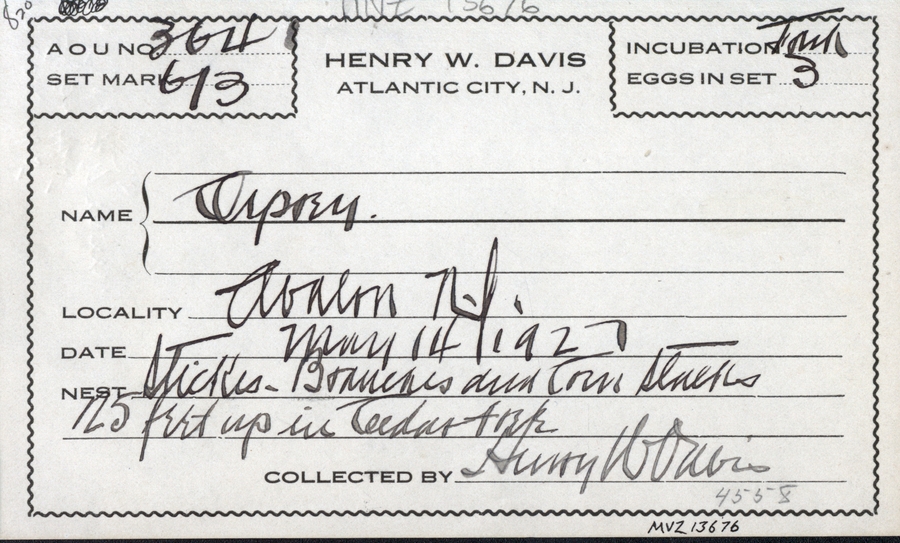 820 MVZ 13676
A O U NO. 364
SET MARK 6/3
HENRY W. DAVIS
ATLANTIC CITY, N. J.
INCUBATION Fresh
EGGS IN SET 3
NAME Osprey.
LOCALITY Avalon N.J.
DATE May 14/1927
NEST Sticks - Branches and Corn Stalks
25 feet up in Cedar tree
COLLECTED BY Henry W Davis
4558
MVZ 13676